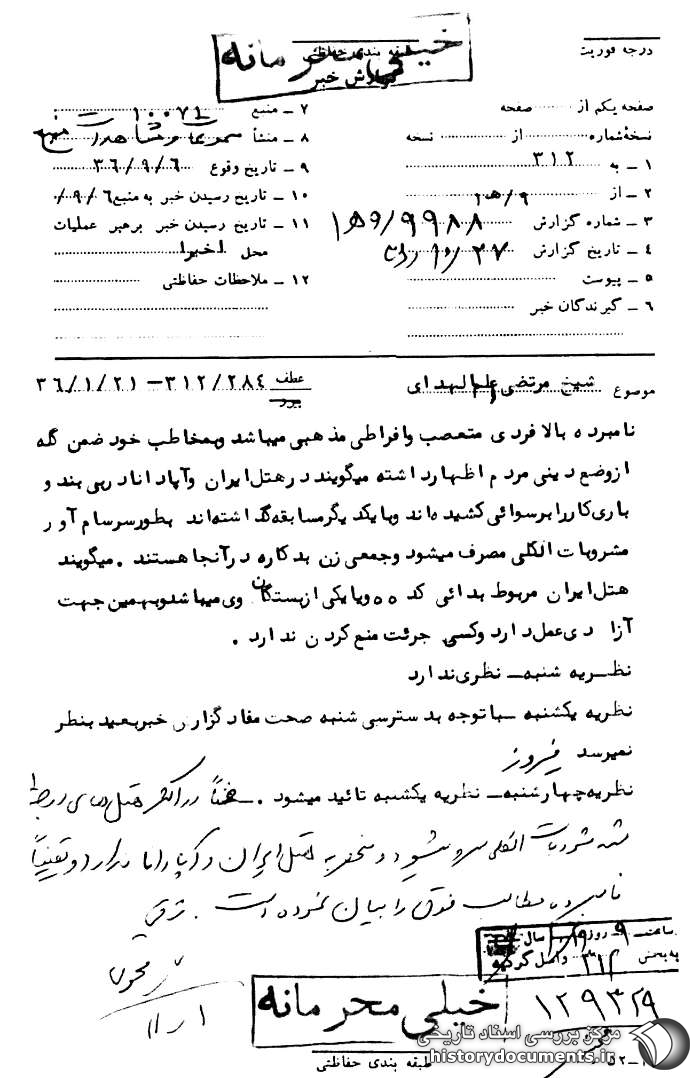 درجه فوریت
طبقه بندی حفاظتی
خیلی محرمانه
گزارش خبر
صفحه یکم از صفحه
نسخهٔ شماره از نسخه
۱ ـ به ۳۱۲
۲ ـ از ۹/ه‍ ۱
۳ ـ شماره گزارش ۹۹۸۸/۹ه‍ ۱
۴ ـ تاریخ گزارش ۲۷/۱۰/
۵ ـ پیوست
۶ ـ گیرندگان خبر
۷ ـ منبع ۱۰۰۷۴
۸ ـ منشأ مسموعات و مشاهدات منبع
۹ ـ تاریخ وقوع ۳۶/۹/۶
۱۰ ـ تاریخ رسیدن خبر به منبع ۶/۹/
۱۱ ـ تاریخ رسیدن خبر برهبر عملیات
محل اخیرا
۱۲ ـ ملاحظات حفاظتی
موضوع شیخ مرتضی علم الهدای
عطف ۳۱۲/۲۸۴ – ۳۶/۱/۲۱
پیرو
نامبرده بالا فردی متعصب وافراطی مذهبی میباشد وبمخاطب خود ضمن گله
ازوضع دینی مردم اظهارداشته میگویند درهتل ایران وآپادانا دربی بند و
باری کاررا برسوائی کشیده اند وبا یکدیگرمسابقه گذاشته‌اند بطورسرسام آور
مشروبات الکلی مصرف میشود وجمعی زن بدکاره درآنجا هستند . میگویند
هتل ایران مربوط بدائی کد ۵۵ ویا یکی ازبستگان وی میباشد وبهمین جهت
آزادی عمل دارد وکسی جرئت منع کردن ندارد .
نظریه شنبه ـ نظری ندارد
نظریه یکشنبه ـ با توجه بدسترسی شنبه صحت مفاد گزارش خبربعید بنظر
نمیرسد فیروز
نظریه چهارشنبه ـ نظریه یکشنبه تائید میشود . ـ ضمناً در اکثر هتل‌های
مشروبات الکلی سرو میشود و منحصر به هتل ایران و آپادانا ندارد و یقیناً
نامبرده مطالب فوق را بیان نموده است . شرقی
ساعت ۹ روز سال
به بخش ۳۱۲ واصل گردید
خیلی محرمانه
۱۲۹۳۲۹
طبقه بندی حفاظتی
مرکز بررسی اسناد تاریخی
historydocuments.ir